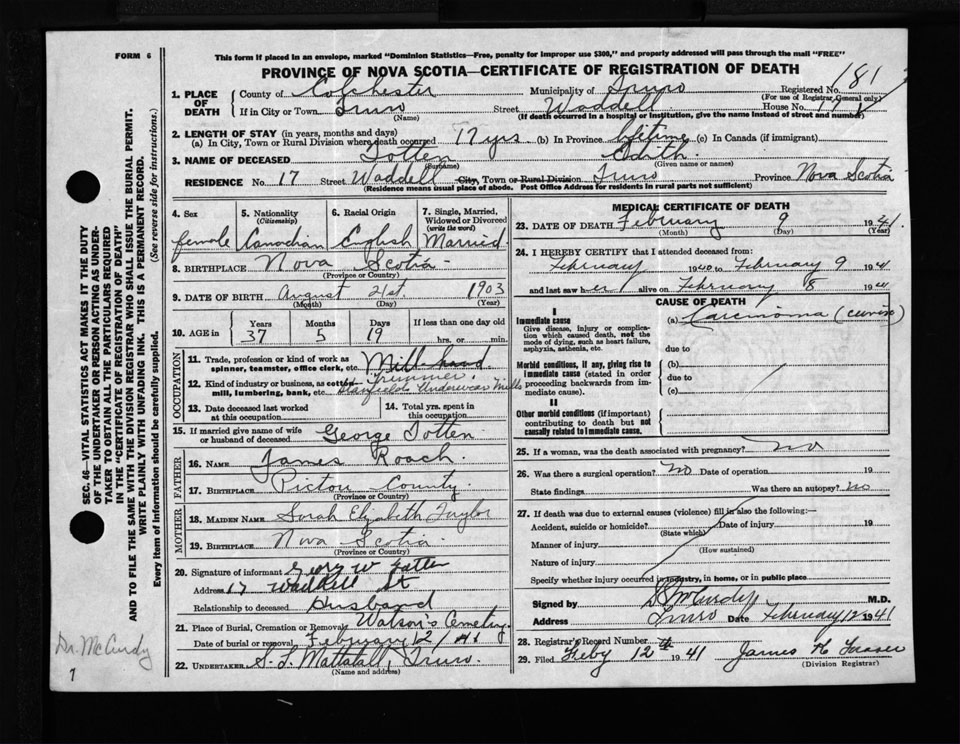 FORM 6
This form if placed in an envelope, marked "Dominion Statistics—Free, penalty for improper use $300," and properly addressed will pass through the mail "FREE"
PROVINCE OF NOVA SCOTIA—CERTIFICATE OF REGISTRATION OF DEATH
181
1. PLACE OF DEATH County of Colchester Municipality of Truro Registered No.
(For use of Registrar General only)
If in City or Town Truro Street Waddell House No. 17
(Name) (If death occurred in a hospital or institution, give the name instead of street and number)
2. LENGTH OF STAY (in years, months and days)
(a) In City, Town or Rural Division where death occurred 17 yrs. (b) In Province lifetime (c) In Canada (if immigrant)
3. NAME OF DECEASED Totten Edith
(Surname) (Given name or names)
RESIDENCE No. 17 Street Waddell City, Town or Rural Division Truro Province Nova Scotia
(Residence means usual place of abode. Post Office Address for residents in rural parts not sufficient)
4. Sex 5. Nationality (Citizenship) 6. Racial Origin 7. Single, Married, Widowed or Divorced (write the word)
female Canadian English Married
8. BIRTHPLACE Nova Scotia
(Province or Country)
9. DATE OF BIRTH August 21st 1903
(Month) (Day) (Year)
10. AGE in Years Months Days If less than one day old
37 5 19 hrs. or min.
OCCUPATION
11. Trade, profession or kind of work as spinner, teamster, office clerk, etc. Mill-hand
12. Kind of industry or business, as cotton mill, lumbering, bank, etc. Trimmer, Stanfields Underwear Mills
13. Date deceased last worked at this occupation 14. Total yrs. spent in this occupation
15. If married give name of wife or husband of deceased George Totten
FATHER
16. NAME James Roach
17. BIRTHPLACE Pictou County
(Province or Country)
MOTHER
18. MAIDEN NAME Sarah Elizabeth Taylor
19. BIRTHPLACE Nova Scotia
(Province or Country)
20. Signature of informant Geory W Totten
Address 17 Waddell St
Relationship to deceased Husband
21. Place of Burial, Cremation or Removal Watson's Cemetery
Date of burial or removal February 12/41
22. UNDERTAKER S. L. Mattatall, Truro.
(Name and address)
MEDICAL CERTIFICATE OF DEATH
23. DATE OF DEATH February 9 1941
(Month) (Day) (Year)
24. I HEREBY CERTIFY that I attended deceased from:
February 1940 to February 9 1941
and last saw her alive on February 8 1941
CAUSE OF DEATH
I
Immediate cause (a) Carcinoma (cervix)
Give disease, injury or complication which caused death, not the mode of dying, such as heart failure, asphyxia, asthenia, etc.
due to
Morbid conditions, if any, giving rise to immediate cause (stated in order proceeding backwards from immediate cause). (b)
due to
(c)
II
Other morbid conditions (if important) contributing to death but not causally related to immediate cause.
25. If a woman, was the death associated with pregnancy? no
26. Was there a surgical operation? no Date of operation 19
State findings Was there an autopsy? no
27. If death was due to external causes (violence) fill in also the following:—
Accident, suicide or homicide? Date of injury 19
(State which)
Manner of injury
(How sustained)
Nature of injury
Specify whether injury occurred in industry, in home, or in public place
Signed by McCurdy M.D.
Address Truro Date February 12 1941
28. Registrar's Record Number
29. Filed Feby 12th 1941 James
(Division Registrar)
SEC. 46—VITAL STATISTICS ACT MAKES IT THE DUTY
OF THE UNDERTAKER OR PERSON ACTING AS UNDERTAKER TO OBTAIN ALL THE PARTICULARS REQUIRED
IN THE "CERTIFICATE OF REGISTRATION OF DEATH"
AND TO FILE THE SAME WITH THE DIVISION REGISTRAR WHO SHALL ISSUE THE BURIAL PERMIT.
WRITE PLAINLY WITH UNFADING INK. THIS IS A PERMANENT RECORD.
Every item of information should be carefully supplied. (See reverse side for instructions.)
Dr. McCurdy
7